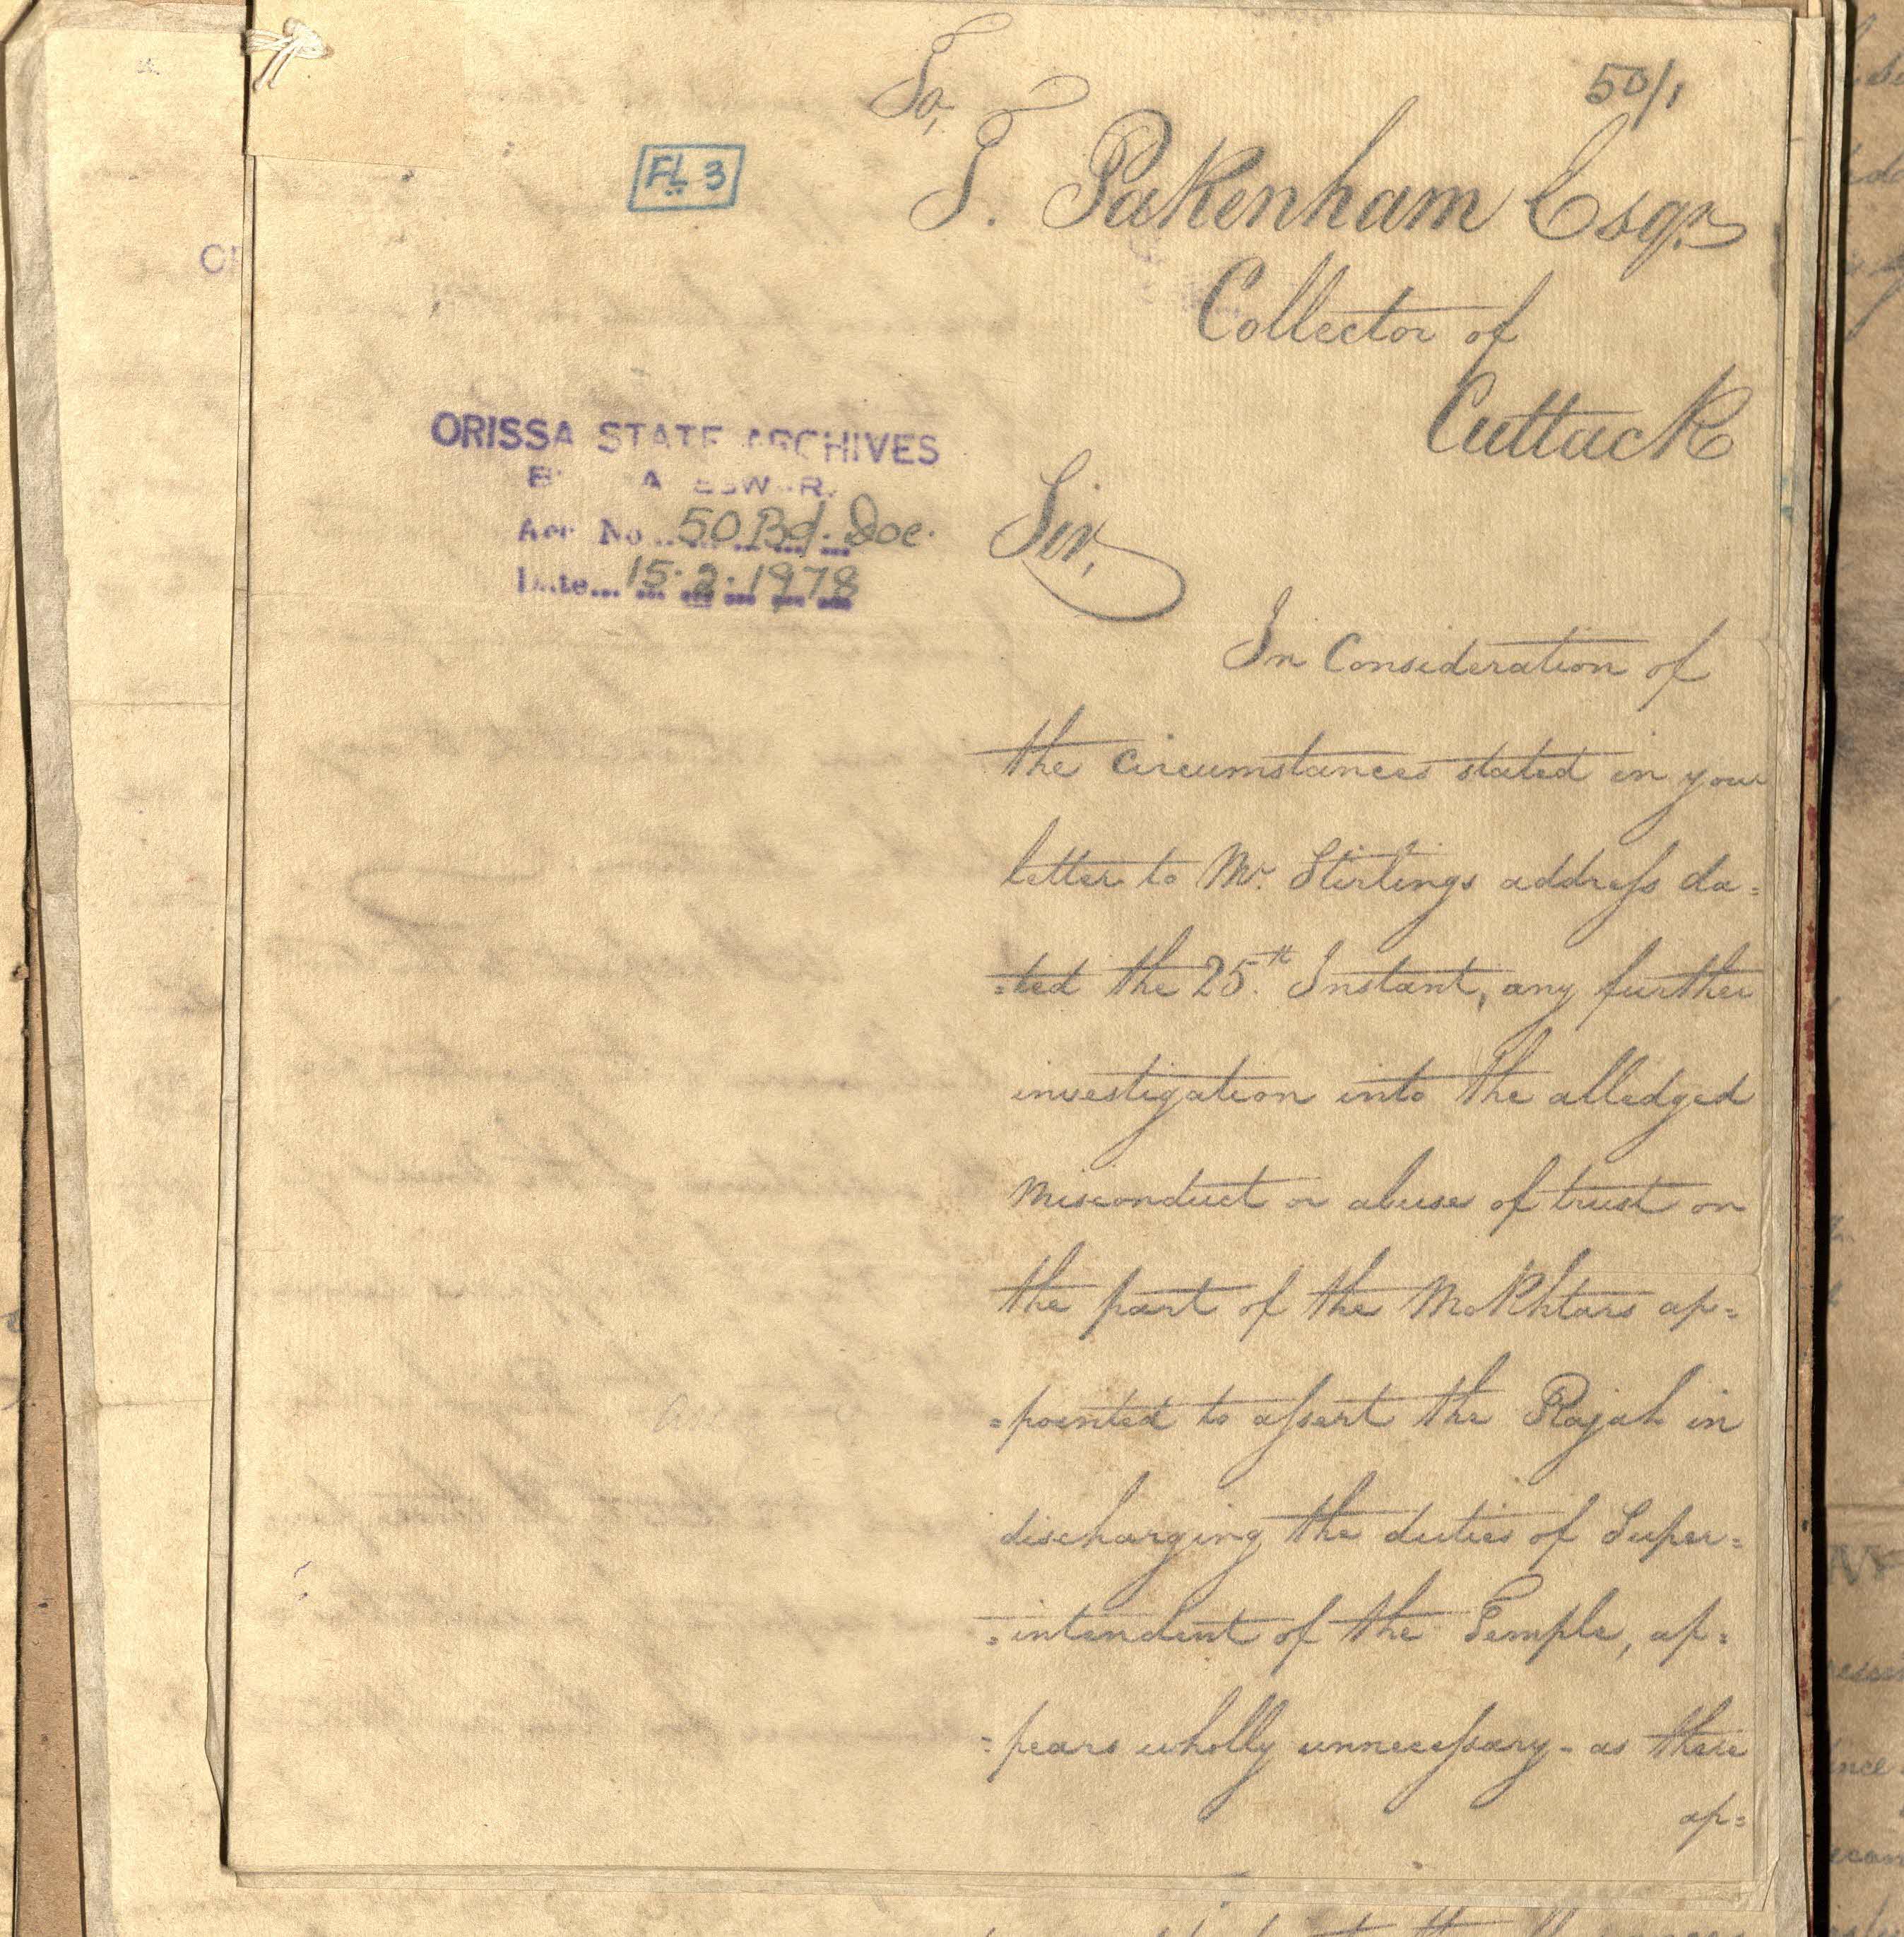 To,
50/1
T. Pakenham Esqr.
FL 3
Collector of
Cuttack
ORISSA STATE ARCHIVES
Acc No... 50 Bd. Doc.
Date... 15.2.1978
Sir,
In Consideration of
the Circumstances stated in your
letter to Mr. Stirlings address da=
=ted the 25.th Instant, any further
investigation into the alledged
misconduct or abuse of trust on
the part of the Mokhtars ap=
=pointed to assert the Rajah in
discharging the duties of Super=
=intendent of the Temple, ap=
=pears wholly unnecessary - as there
ap=